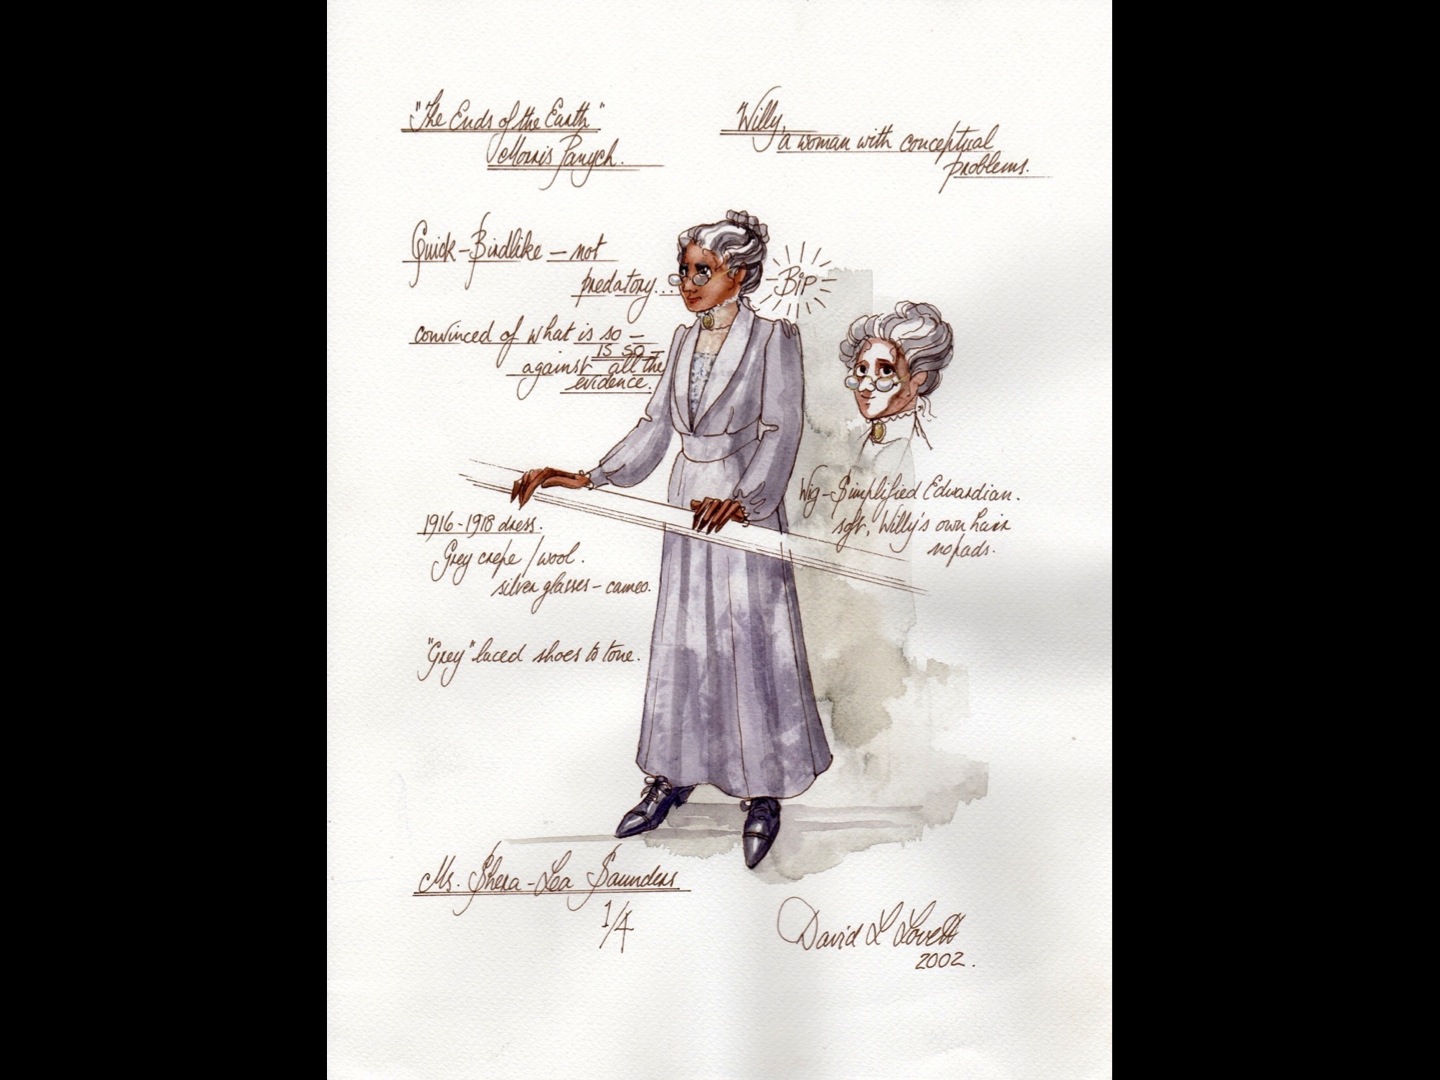 "The Ends of the Earth"
Morris Panych.
Willy,
a woman with conceptual
problems.
Quick-Birdlike - not
predatory...
Bip
convinced of what is so -
is so -
against all the
evidence.
Wig - Simplified Edwardian.
soft, Willy's own hair
no pads.
1916-1918 dress.
Grey crepe / wool.
silver glasses - cameo.
"Grey" laced shoes to tone.
Ms. Shera-Lea Saunders
1/4
David L Lovett
2002.